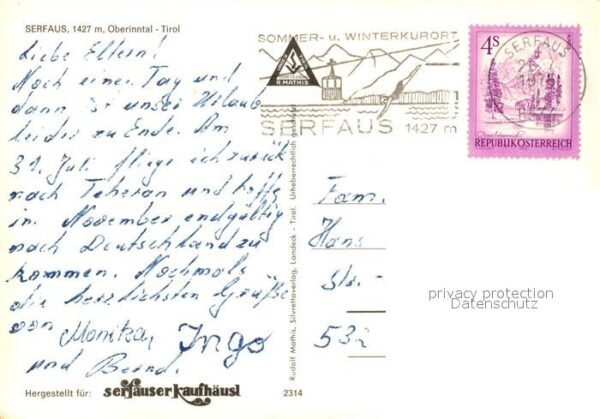 SERFAUS, 1427 m, Oberinntal - Tirol
Liebe Eltern!
Noch einen Tag und
dann ist unser Urlaub
leider zu Ende. Am
31. Juli fliege ich zurück
nach Teheran und hoffe
in November endgültig
nach Deutschland zu
kommen. Nochmals
die herzlichsten Grüße
von Monika, Ingo
und Bernd.
Hergestellt für: serfauser kaufhäusl
2314
Rudolf Mathis, Silvrettaverlag, Landeck - Tirol. Urheberrechtlich geschützt
SOMMER- u. WINTERKURORT
R. MATHIS
SERFAUS 1427 m
SERFAUS
4S
REPUBLIK ÖSTERREICH
Fam.
Hans
Str.
53
privacy protection
Datenschutz